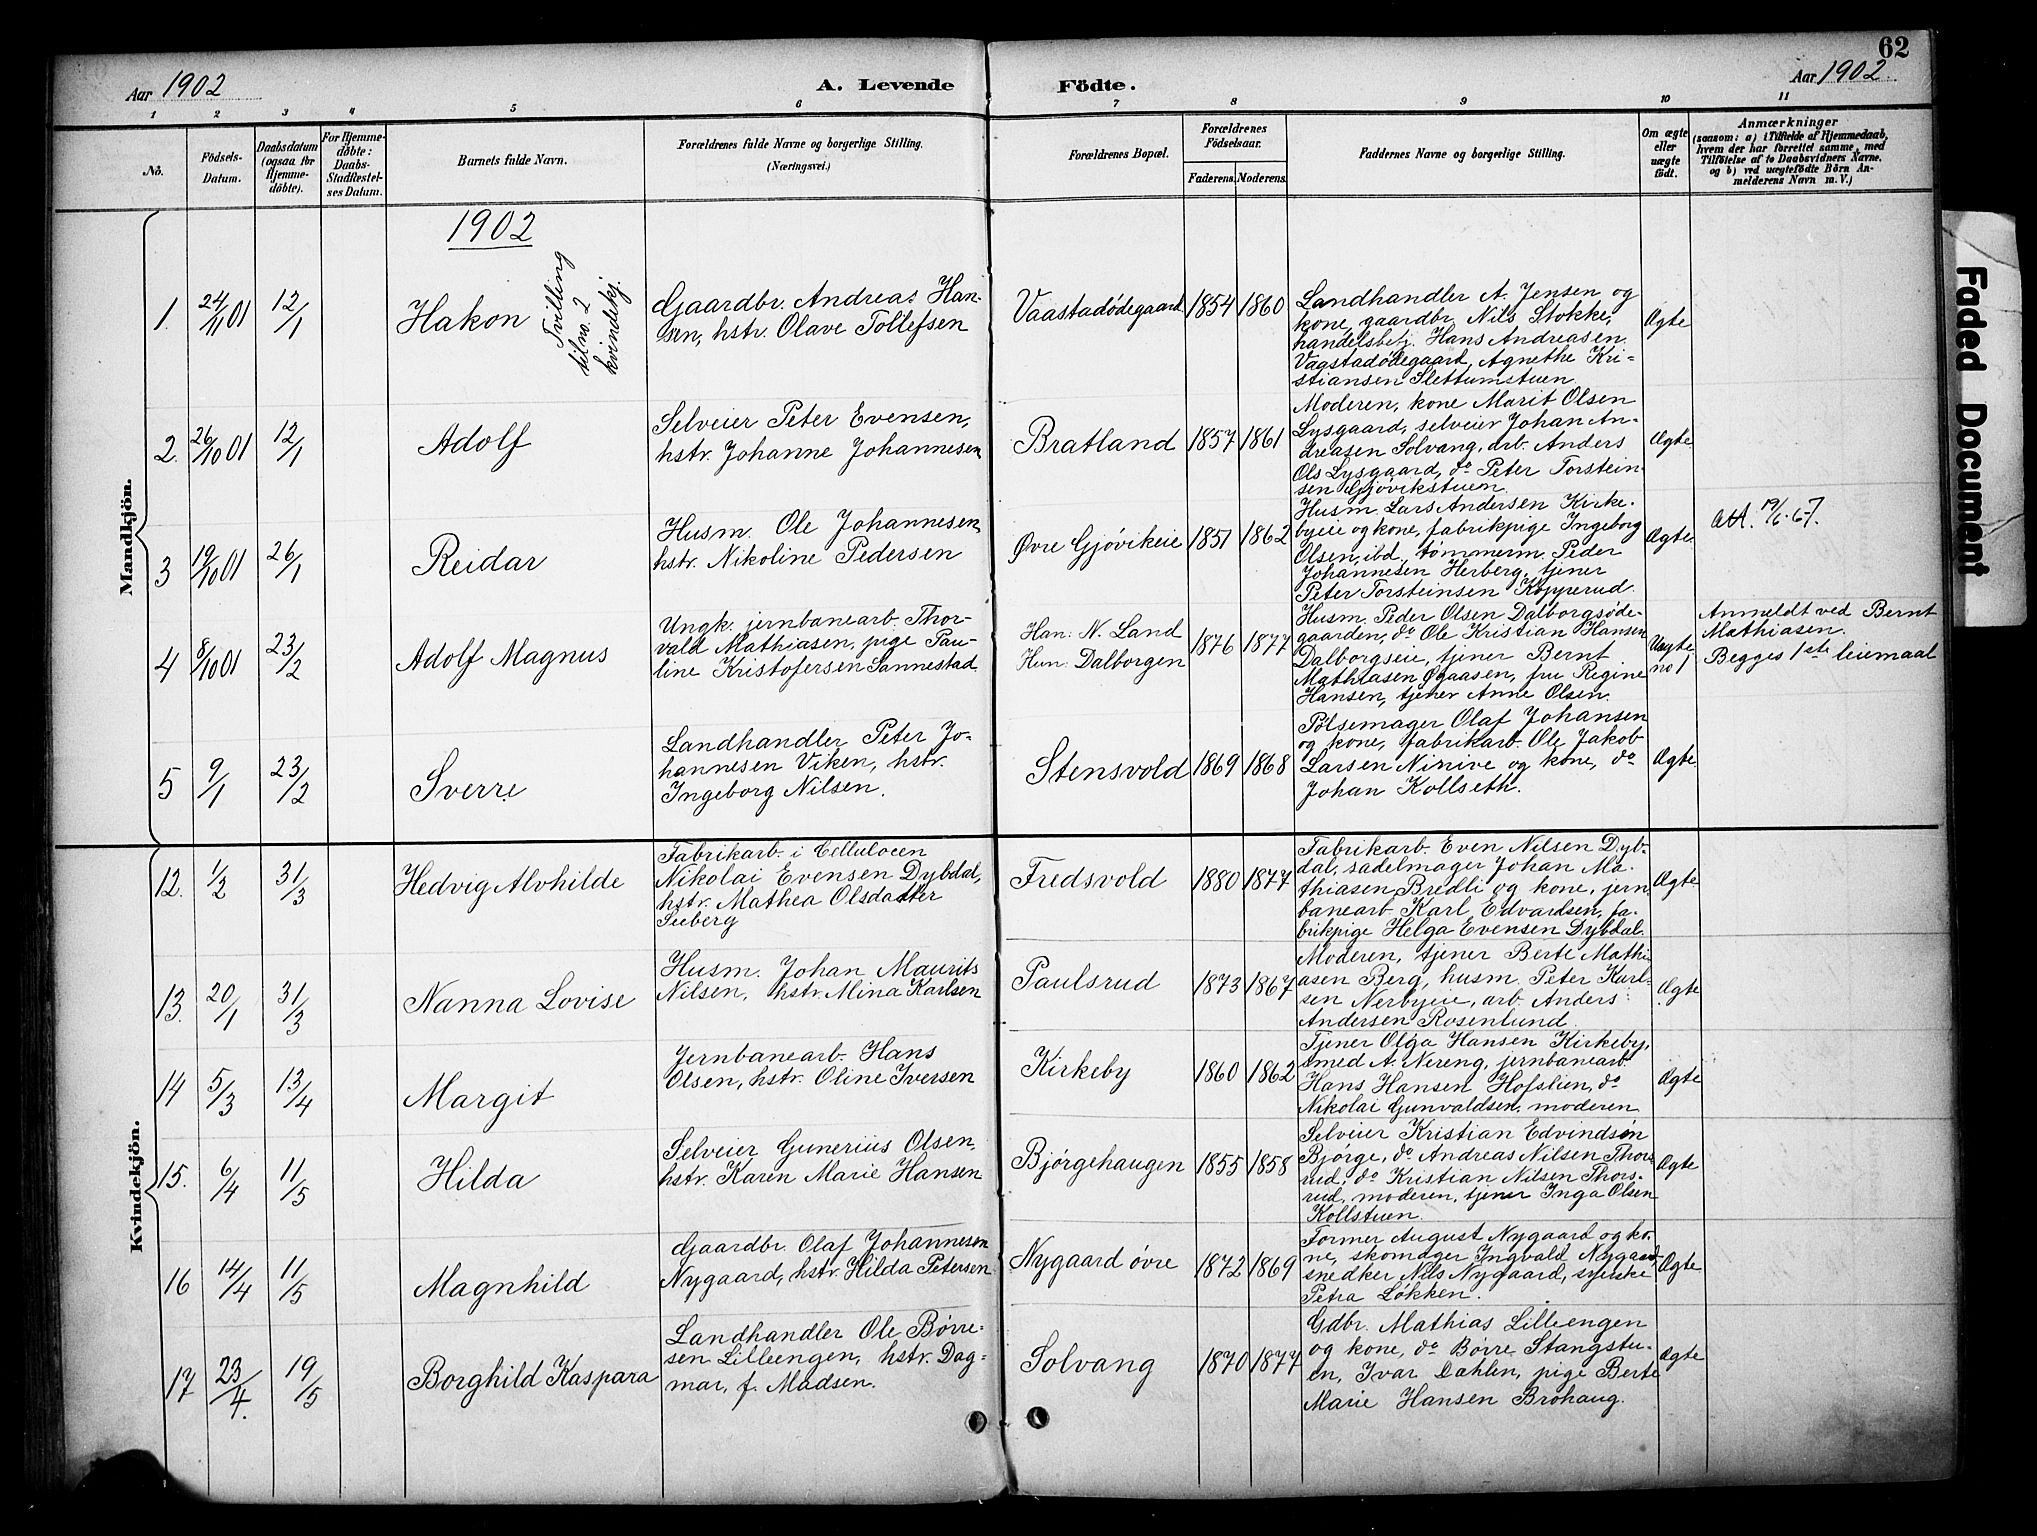 62
Aar 1902
A. Levende
Födte.
Aar 1902.
1 2 3 4 5 6 7 8 9 10 11
No.
Födsels-
Datum.
Daabsdatum
(ogsaa for
Hjemme-
döbte).
For Hjemme-
döbte:
Daabs-
Stadfæstel-
ses Datum.
Barnets fulde Navn.
Forældrenes fulde Navne og borgerlige Stilling.
(Næringsvei.)
Forældrenes Bopæl.
Forældrenes
Födselsaar.
Faderens. Moderens.
Faddernes Navne og borgerlige Stilling.
Om ægte
eller
uægte
født.
Anmærkninger
(saasom: a) i Tilfælde af Hjemmedaab,
hvem der har forrettet samme, med
Tilföielse af to Daabsvidners Navne,
og b) ved uægtefödte Börn An-
melderens Navn m. V.)
Mandkjön.
1902
1.
24/11 01
12/1
Hakon
Tvilling
til no. 2
kvindekj.
Gaardbr. Andreas Han-
sen, hstr. Olave Tollefsen
Vaastadödegaard
1854
1860
Landhandler A. Jensen og
kone, gaardbr. Nils Stokke,
handelsbetj. Hans Andreasen
Vagstadödegaard, Agnethe Kri-
stiansen Slettumstuen
Ægte
2.
26/10 01
12/1
Adolf
Selveier Peter Evensen,
hstr. Johanne Johannesen
Bratland
1857
1861
Moderen, kone Marit Olsen
Lysgaard, selveier Johan An-
dreasen Solvang, arb. Anders
Ols Lysgaard, do Peter Torstein-
sen Gjøvikstuen
Ægte
3
19/10 01
26/1
Reidar
Husm. Ole Johannesen
hstr. Nikoline Pedersen
Øvre Gjøvikeie
1851
1862
Husm. Lars Andersen Kirke-
byeie og kone, fabrikpige Ingeborg
Olsen, ibd, tømmerm. Peder
Johannesen Herberg, tjener
Peter Torsteinsen Kopperud
Ægte
Att. 19/6-67.
4
8/10 01
23/2
Adolf Magnus
Ungk. jernbanearb. Thor-
vald Mathiasen, pige Pau-
line Kristofersen Sannestad
Han: N. Land
Hun: Dalborgen
1876
1877
Husm. Peder Olsen Dalborgsøde-
gaarden, do Ole Kristian Hansen
Dalborgseie, tjener Bernt
Mathiasen Øgaasen, fru Regine
Hansen, tjener Anne Olsen.
Uægte
no 1
Anmeldt ved Bernt
Mathiasen.
Begges 1ste leiemaal
5
9/1
23/2
Sverre
Landhandler Peter Jo-
hannesen Viken, hstr.
Ingeborg Nilsen.
Stensvold
1869
1868
Pølsemager Olaf Johansen
og kone, fabrikarb. Ole Jakob
Larsen Ninive og kone, do
Johan Kollseth.
Ægte
Kvindekjön.
12.
1/2
31/3
Hedvig Alvhilde
Fabrikarb. i Celluloeen
Nikolai Evensen Dybdal,
hstr. Mathea Olsdatter
Seeberg
Fredsvold
1880
1877
Fabrikarb. Even Nilsen Dyb-
dal, sadelmager Johan Ma-
thiasen Bredli og kone, jern
banearb. Karl Edvardsen, fa-
brikpige Helga Evensen Dybdal.
Ægte
13.
20/1
31/3
Nanna Lovise
Husm. Johan Maurits
Nilsen, hstr. Mina Karlsen
Paulsrud
1873
1867
Moderen, tjener Berte Mathi
asen Berg, husm. Peter Karl-
sen Nerbyeie, arb. Anders
Andersen Rosenlund
Ægte
14
5/3
13/4
Margit
Jernbanearb. Hans
Olsen, hstr. Oline Iversen
Kirkeby
1860
1862
Tjener Olga Hansen Kirkeby,
smed A. Nereng, jernbanearb.
Hans Hansen Hofslien, do
Nikolai Gunvaldsen, moderen
Ægte
15.
6/4
11/5
Hilda
Selveier Gunerius Olsen
hstr. Karen Marie Hansen
Bjørgehaugen
1855
1858
Selveier Kristian Edvindsen
Bjørge, do Andreas Nilsen Thors
rud, do Kristian Nilsen Thors-
rud, moderen, tjener Inga Olsen
Kollstuen.
Ægte
16
14/4
11/5
Magnhild
Gaardbr. Olaf Johannesen
Nygaard, hstr. Hilda Petersen
Nygaard øvre
1872
1869
Former August Nygaard og ko-
ne, skomager Ingvald Nygaard
snedker Nils Nygaard, syerske
Petra Løkken.
Ægte
17
23/4.
19/5
Borghild Kaspara
Landhandler Ole Børre-
sen Lilleengen, hstr. Dag-
mar, f. Madsen.
Solvang
1870
1877
Gdbr. Mathias Lilleengen
og kone, do Børre Stangstu-
en, Ivar Dahlen, pige Berte
Marie Hansen Brohaug.
Ægte
Faded Document